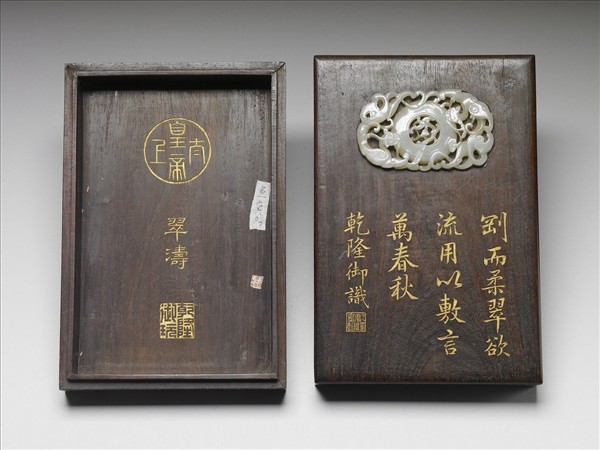 太上皇帝
翠濤
乾隆御玩
剛而柔翠欲
流用以敷言
萬春秋
乾隆御識